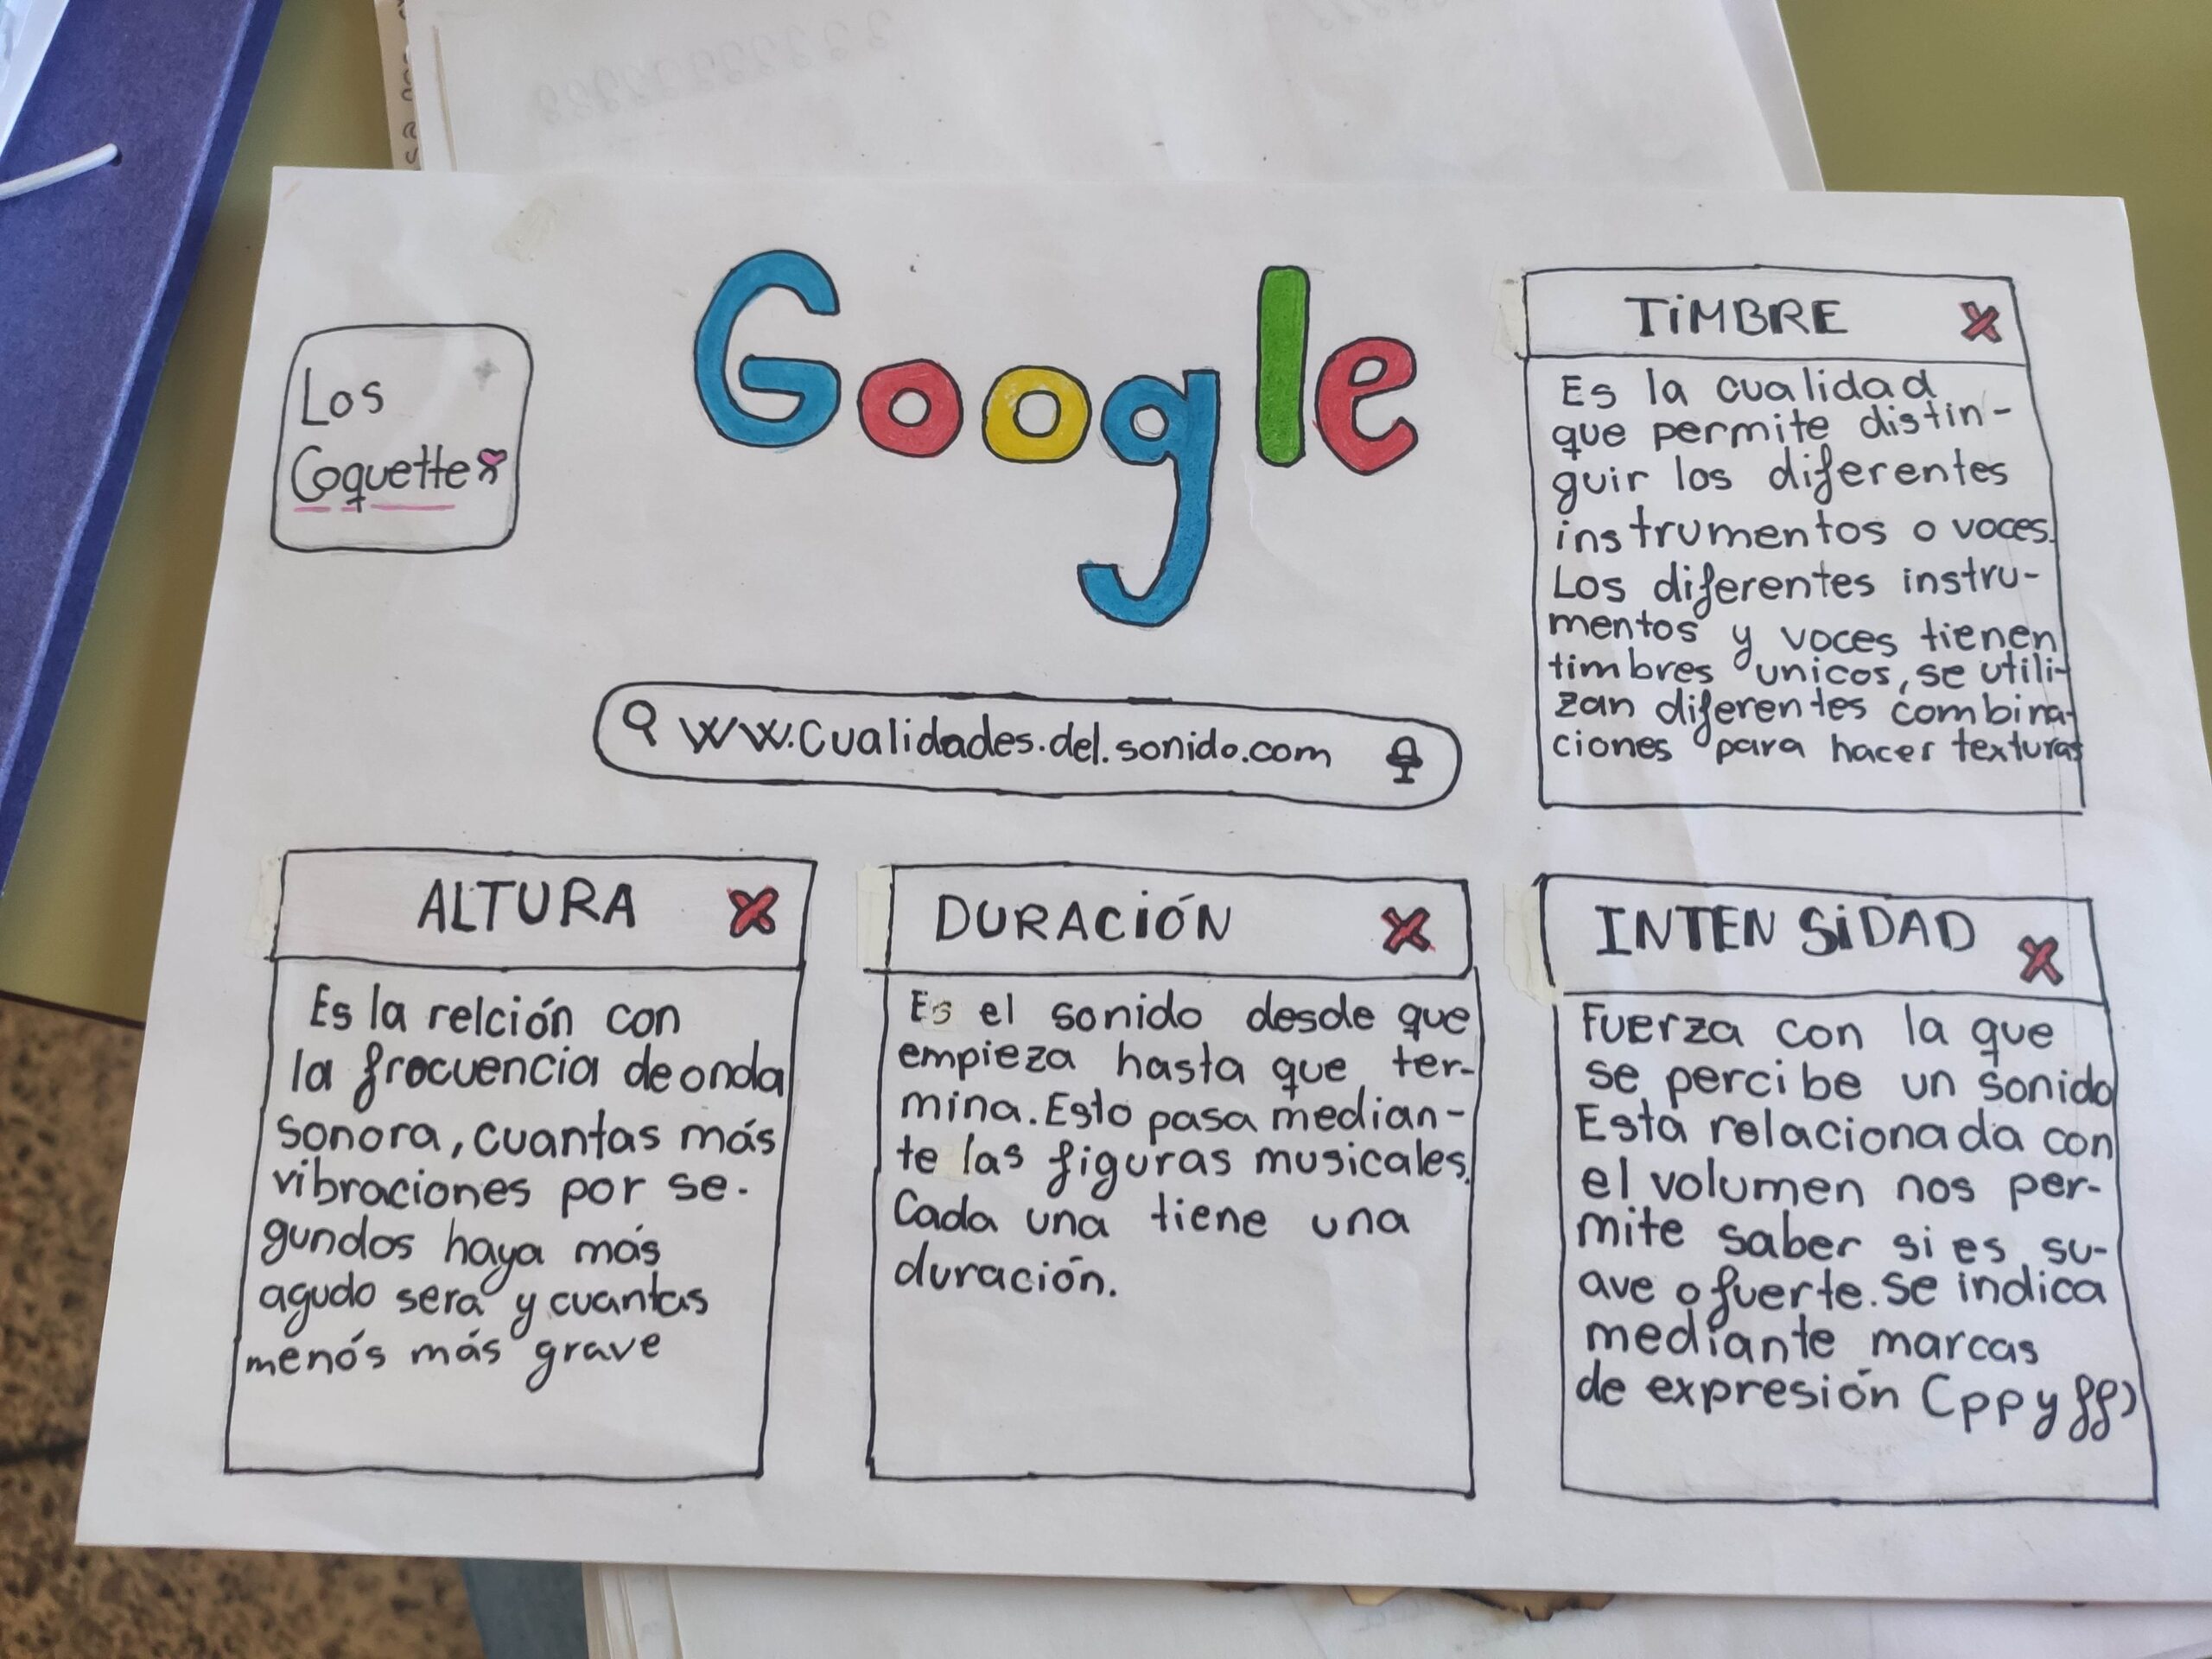 Los
Coquettes
Google
WW.Cualidades.del.sonido.com
TiMBRE
Es la cualidad
que permite distin-
guir los diferentes
instrumentos o voces.
Los diferentes instru-
mentos y voces tienen
timbres unicos, se utili-
zan diferentes combina-
ciones para hacer texturas
ALTURA
Es la relción con
la frecuencia de onda
sonora, cuantas más
vibraciones por se-
gundos haya más
agudo será y cuantas
menós más grave
DURACiÓN
Es el sonido desde que
empieza hasta que ter-
mina. Esto pasa median-
te las figuras musicales.
Cada una tiene una
duración.
INTENSiDAD
Fuerza con la que
se percibe un sonido
Esta relacionada con
el volumen nos per-
mite saber si es su-
ave o fuerte. Se indica
mediante marcas
de expresión (pp y ff)